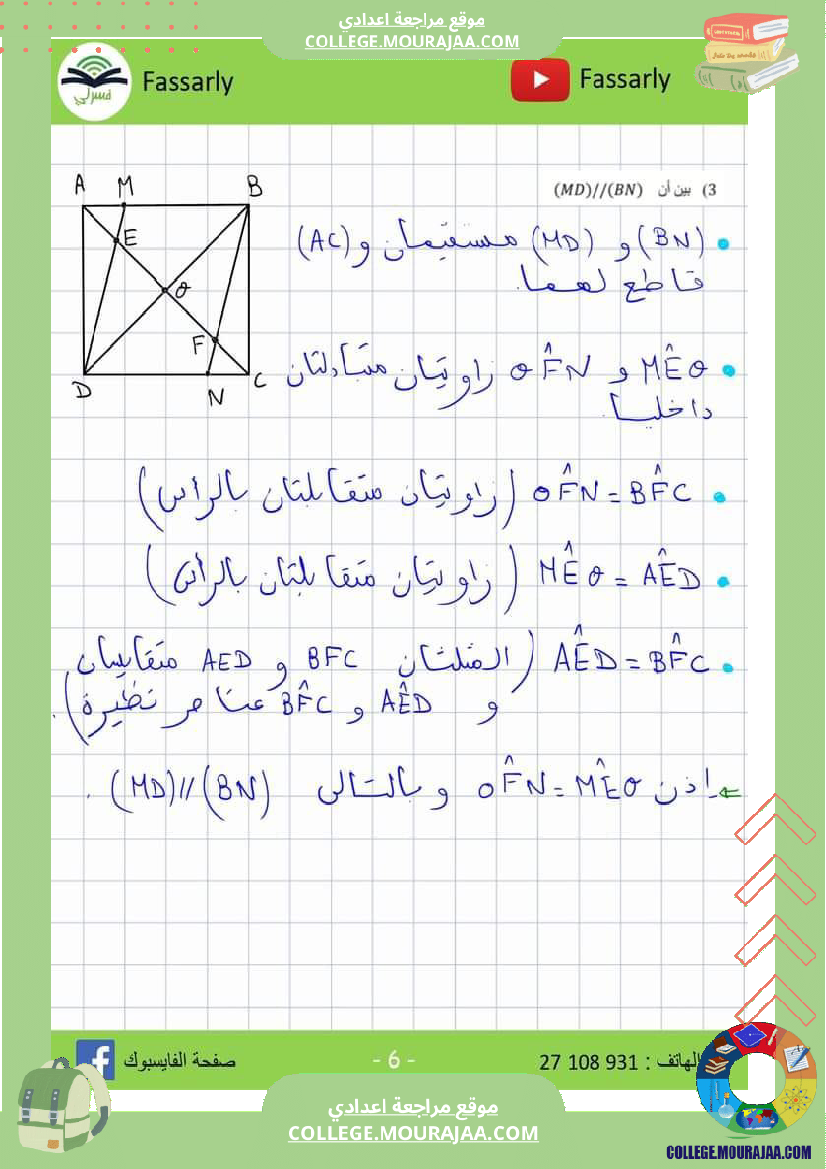 موقع مراجعة اعدادي
COLLEGE.MOURAJAA.COM
Fassarly
فسرلي
Fassarly
3) بين أن (MD)//(BN)
A M B
E
O
F
D N C
(BN) و (MD) مستقيمان و (AC)
قاطع لهما.
MÊO و OF̂N زاويتان متبادلتان
داخليا.
OF̂N = BF̂C (زاويتان متقابلتان بالرأس)
MÊO = AÊD (زاويتان متقابلتان بالرأس)
AÊD = BF̂C (المثلثان BFC و AED متقايسان
و AÊD و BF̂C عناصر نظيرة).
إذن OF̂N = MÊO و بالتالي (MD)//(BN).
صفحة الفايسبوك
- 6 -
الهاتف : 27 108 931
موقع مراجعة اعدادي
COLLEGE.MOURAJAA.COM
COLLEGE.MOURAJAA.COM